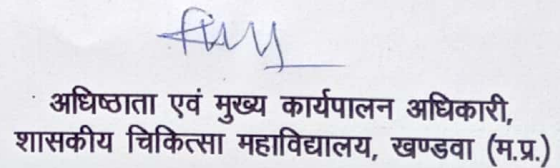 अधिष्ठाता एवं मुख्य कार्यपालन अधिकारी,
शासकीय चिकित्सा महाविद्यालय, खण्डवा (म.प्र.)